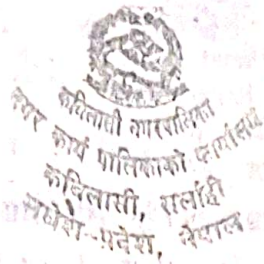 कविलासी नगरपालिका
नगर कार्य पालिकाको कार्यालय
कविलासी, सर्लाही
मधेश-प्रदेश, नेपाल